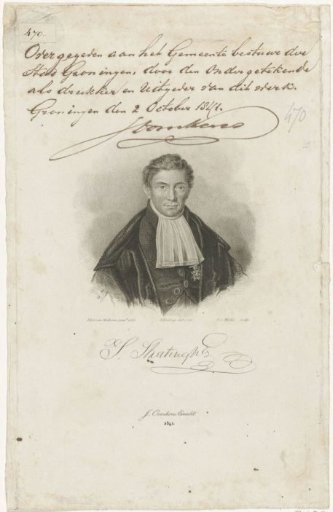 470.
Overgegeven aan het Gemeente bestuur der
Stad Groningen, door den Ondergetekende
als drukker en Uitgever van dit werk.
Groningen den 2 October 1841.
J Oomkens
470
S. Stratingh Ez
J. Oomkens excudit
1841.